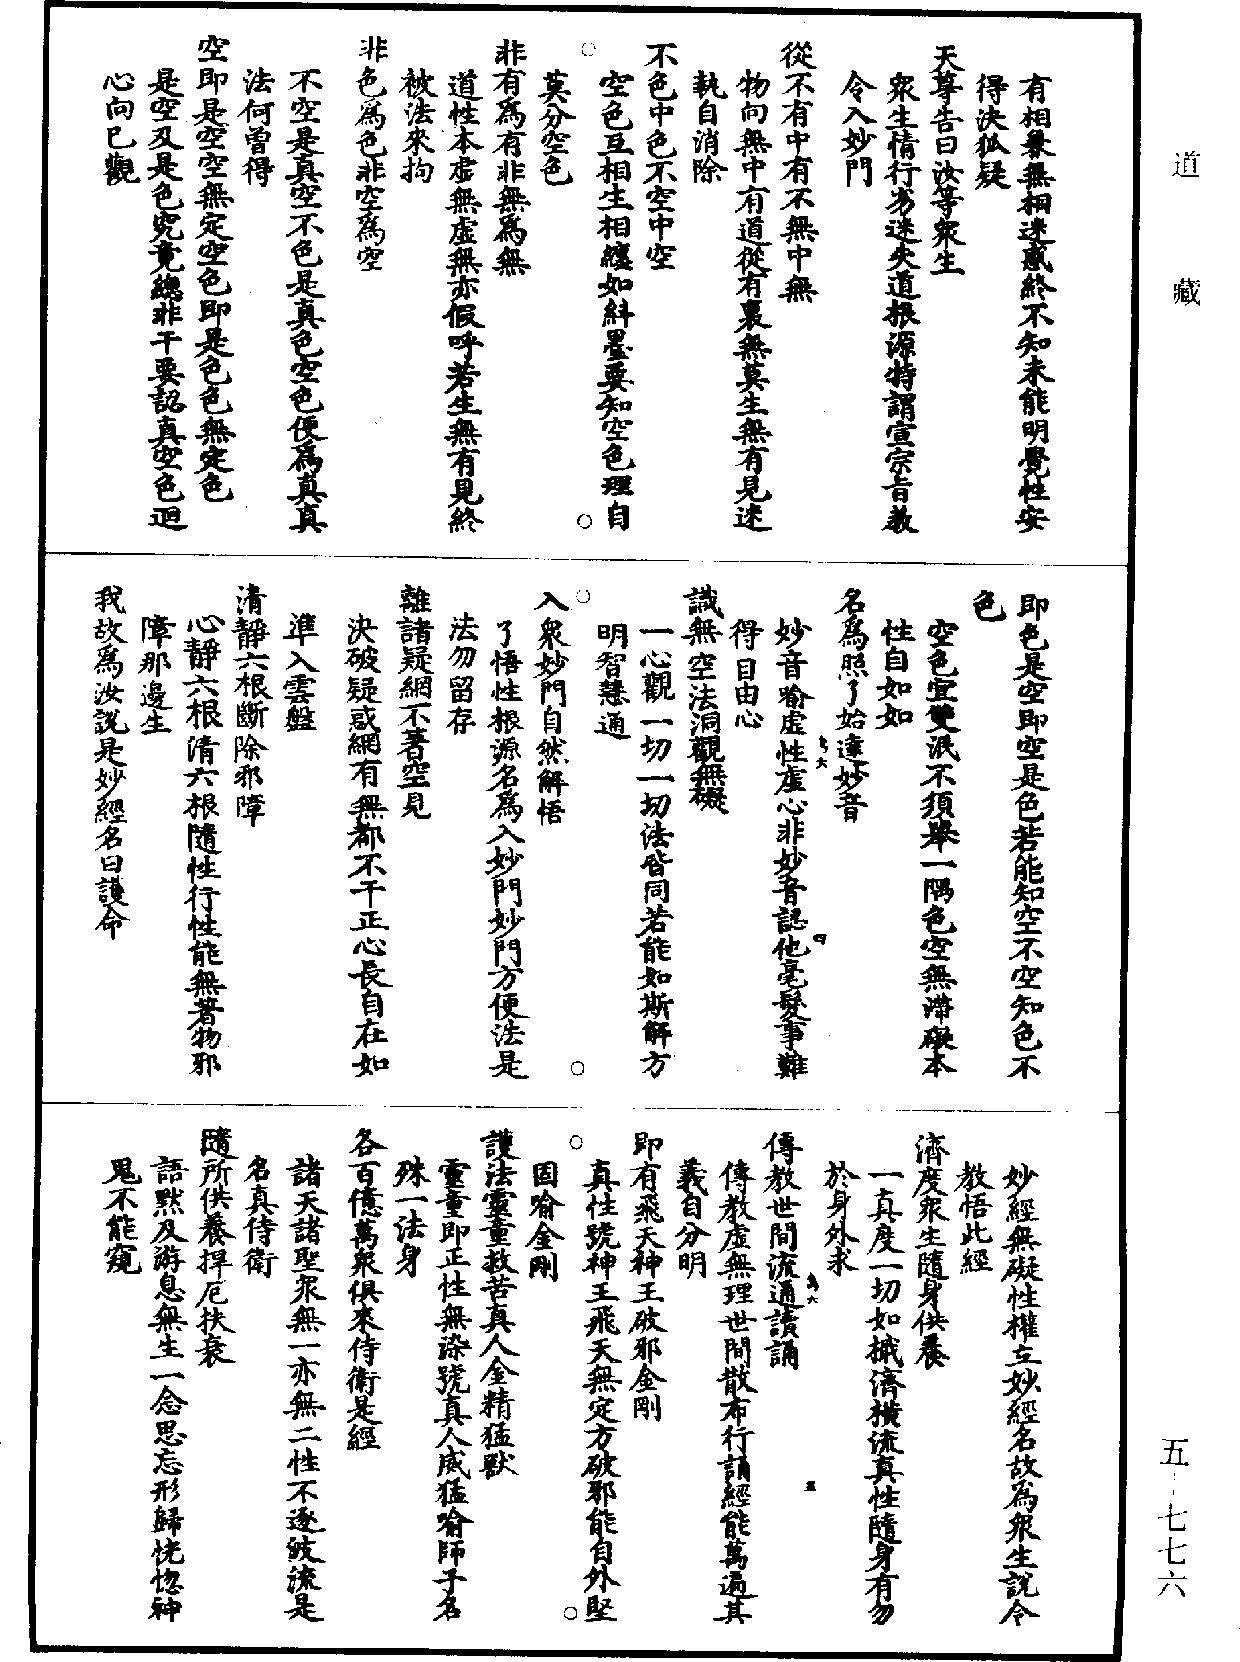 道藏
有相兼無相迷惑終不知未能明覺性安
得決狐疑
天尊告曰汝等衆生
衆生情行劣迷失道根源特謂宣宗旨教
令入妙門
從不有中有不無中無
物向無中有道從有裏無莫生無有見迷
執自消除
不色中色不空中空
空色互相生相纏如糾墨要知空色理自
莫分空色
非有爲有非無爲無
道性本虛無虛無亦假呼若生無有見終
被法來拘
非色爲色非空爲空
不空是真空不色是真色空色便爲真真
法何曾得
空即是空空無定空色即是色色無定色
是空及是色究竟總非干要認真空色迴
心向已觀
即色是空即空是色若能知空不空知色不
色
空色宜雙泯不須舉一隅色空無滯礙本
性自如如
名爲照了始達妙音
妙音喻虛性虛心非妙音認他毫髮事難
得自由心
識無空法洞觀無礙
一心觀一切一切法皆同若能如斯解方
明智慧通
入衆妙門自然解悟
了悟性根源名爲入妙門妙門方便法是
法勿留存
離諸疑網不著空見
決破疑惑網有無都不干正心長自在如
準入雲盤
清靜六根斷除邪障
心靜六根清六根隨性行性能無著物邪
障那邊生
我故爲汝說是妙經名曰護命
妙經無礙性權立妙經名故爲衆生說令
教悟此經
濟度衆生隨身供養
一真度一切如撼濟橫流真性隨身有勿
於身外求
傳教世間流通讀誦
傳教虛無理世間散布行誦經能萬遍其
義自分明
即有飛天神王破邪金剛
真性號神王飛天無定方破邪能自外堅
固喻金剛
護法靈童救苦真人金精猛獸
靈童即正性無染號真人威猛喻師子名
殊一法身
各百億萬衆俱來侍衛是經
諸天諸聖衆無一亦無二性不逐波流是
名真侍衛
隨所供養捍厄扶衰
語默及游息無生一念思忘形歸恍惚神
鬼不能窺
五-七七六